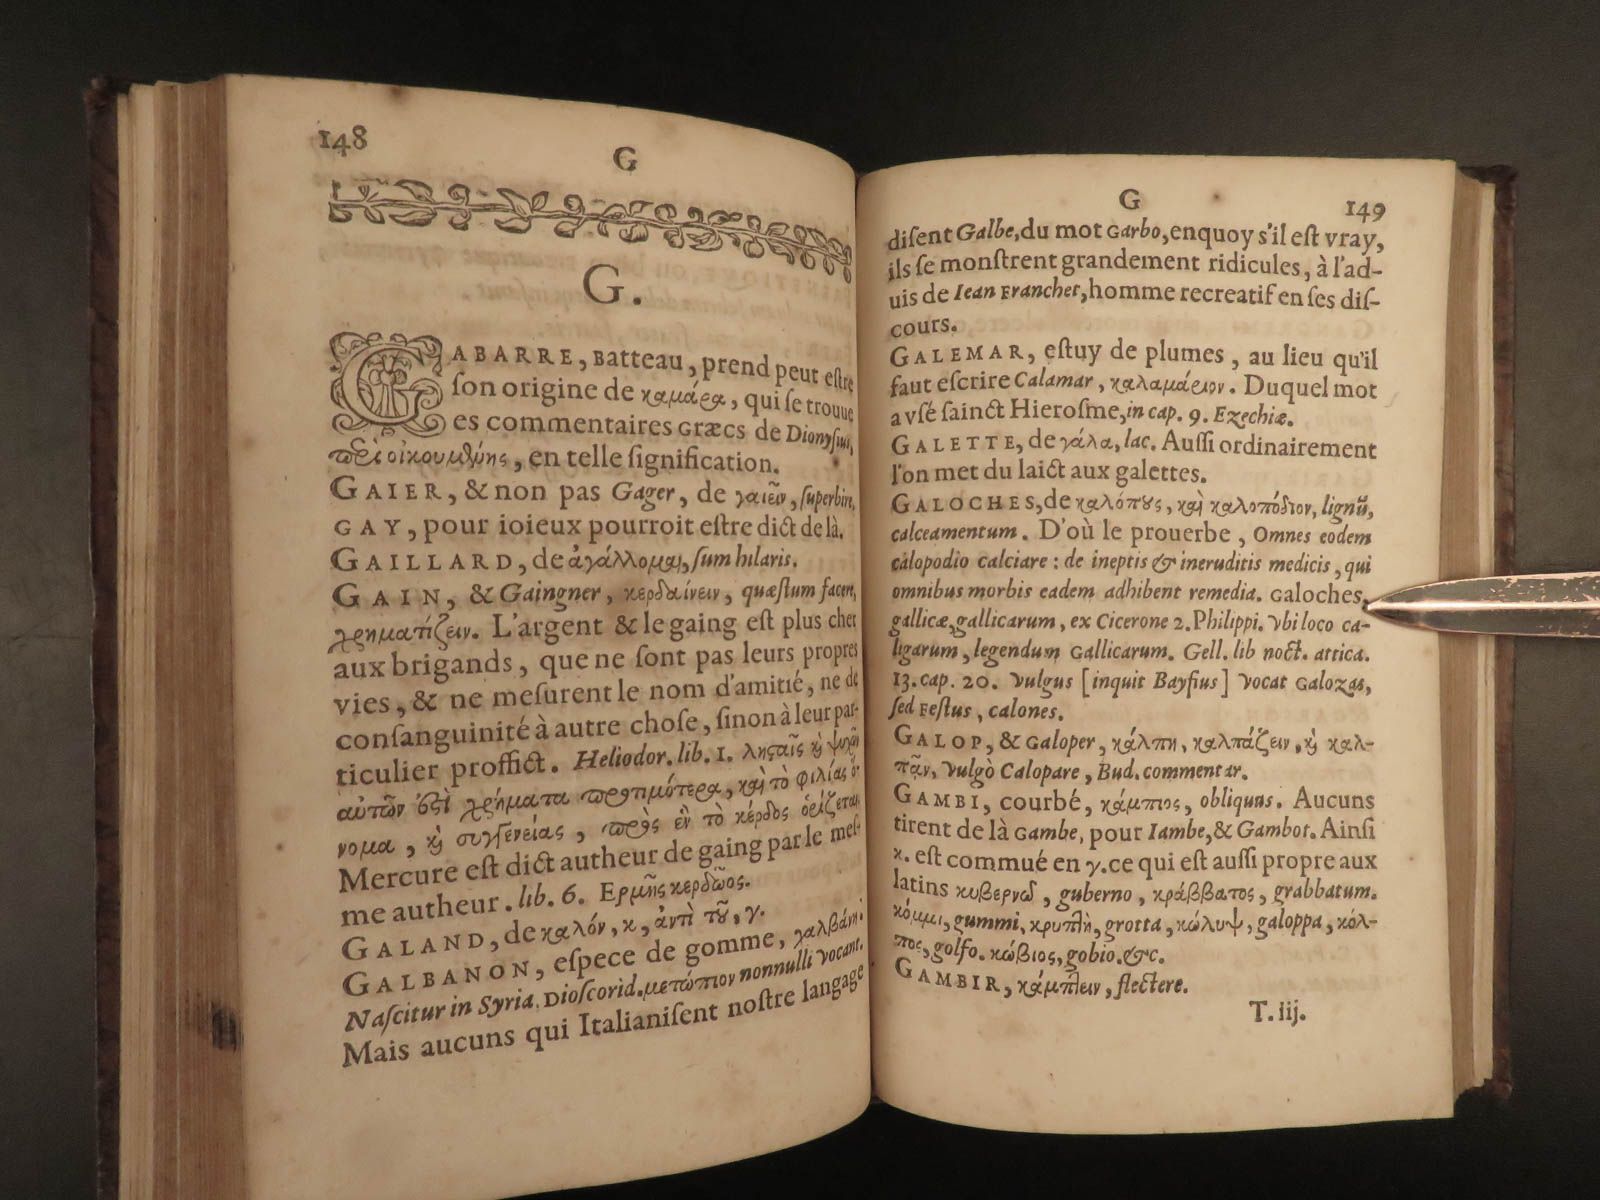 148
G
G.
GABARRE, Batteau, prend peut eſtre
ſon origine de καμάρα, qui ſe trouue
es commentaires Græcs de Dionyſius,
περὶ οἰκουμένης, en telle ſignification.
GAIER, & non pas Gager, de γαιεῖν, ſuperbire,
GAY, pour ioieux pourroit eſtre dict de là.
GAILLARD, de ἀγάλλομαι, ſum hilaris.
GAIN, & Gaingner, κερδαίνειν, quæſtum facere,
χρηματίζειν. L'argent & le gaing eſt plus cher
aux brigands, que ne ſont pas leurs propres
vies, & ne meſurent le nom d'amitié, ne de
conſanguinité à autre choſe, ſinon à leur par-
ticulier proffict. Heliodor. lib. 1. λῃσταῖς καὶ ψυχῶν
αὐτῶν ἐστὶ χρήματα προτιμότερα, καὶ τὸ φιλίας
νομα, καὶ συγγενείας, πρὸς ἓν τὸ κέρδος ὁρίζεται,
Mercure eſt dict autheur de gaing par le meſ-
me autheur. lib. 6. Ερμῆς κερδῶος.
GALAND, de καλόν, κ, ἀντὶ τοῦ, γ.
GALBANON, eſpece de gomme, γαλβάνη:
Naſcitur in Syria. Dioſcorid. μετώπιον nonnulli vocant.
Mais aucuns qui Italianiſent noſtre langage
G
149
diſent Galbe, du mot Garbo, enquoy s'il eſt vray,
ils ſe monſtrent grandement ridicules, à l'ad-
uis de Iean Franchet, homme recreatif en ſes diſ-
cours.
GALEMAR, eſtuy de plumes, au lieu qu'il
faut eſcrire Calamar, καλαμάριον. Duquel mot
a vſé ſainct Hieroſme, in cap. 9. Ezechiæ.
GALETTE, de γάλα, lac. Auſſi ordinairement
l'on met du laict aux galettes.
GALOCHES, de καλόπους, καὶ καλοπόδιον, lignũ,
calceamentum. D'où le prouerbe, Omnes eodem
calopodio calciare: de ineptis & ineruditis medicis, qui
omnibus morbis eadem adhibent remedia. Galoches,
gallicæ, gallicarum, ex Cicerone 2. Philippi. Vbi loco ca-
ligarum, legendum Gallicarum. Gell. lib noct. attica.
13. cap. 20. Vulgus [inquit Bayfius] vocat Galozas,
ſed Feſtus, calones.
GALOP, & Galoper, κάλπη, καλπάζειν, καὶ καλ-
πᾶν, Vulgò Calopare, Bud. commentar.
GAMBI, courbé, κάμπιος, obliquus. Aucuns
tirent de là Gambe, pour Iambe, & Gambot. Ainſi
κ. eſt commué en γ. ce qui eſt auſſi propre aux
latins κυβερνῶ, guberno, κράββατος, grabbatum.
κόμμι, gummi, κρυπτὴ, grotta, κώλυψ, galoppa, κόλ-
πος, golfo. κώβιος, gobio. &c.
GAMBIR, κάμπτειν, flectere.
T. iij.